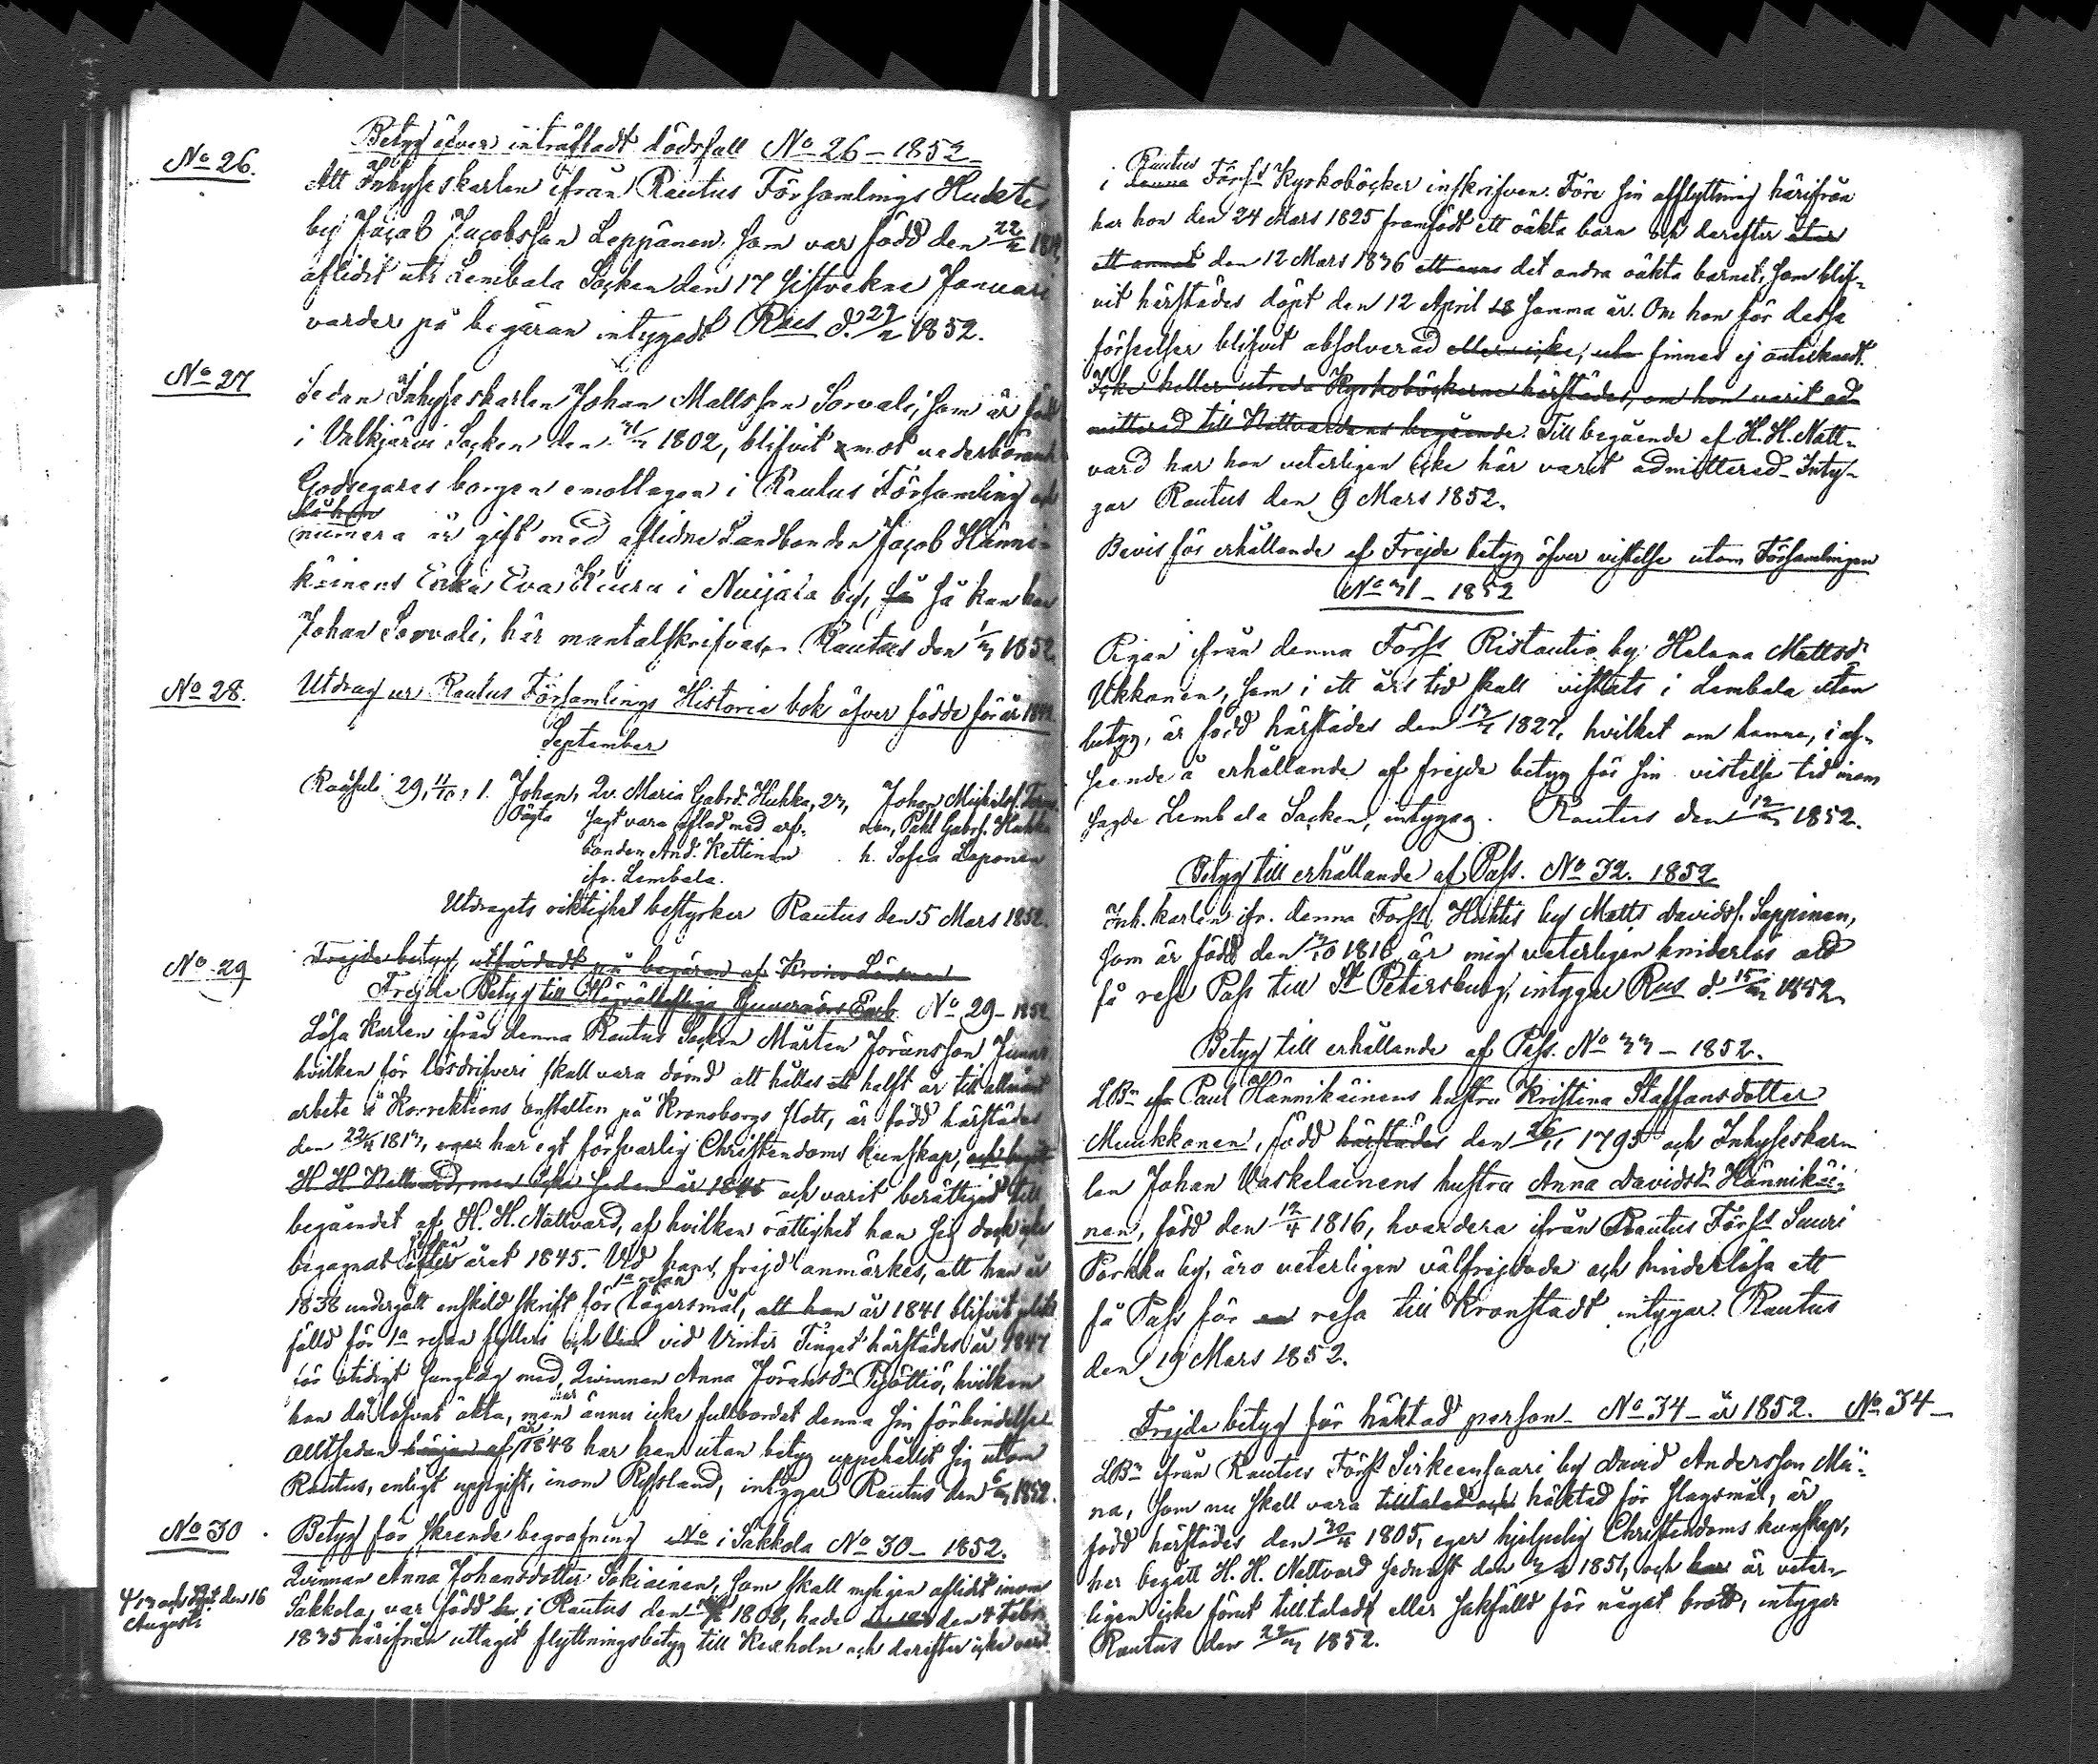 Betyg öfver inträffadt dödsfall No 26 – 1852
No 26.
Att Inhyseskarlen ifrån Rautus Församlings Huhtis
by Jacob Jacobsson Leppänen, som var född den 22/2
aflidit uti Lembala Socken den 17 sistvekne Januari
varder på begäran intygadt Raus d. 29/2 1852.
No 27
Sedan Inhyseskarlen Johan Mattsson Sorvali, som är född
i Valkjärvi Socken den 1802, blifvit emot vederbörande
Godsegares borgen emottagen i Rautus Församling och
då han
numera är gift med aflidne Landbonden Jacob Hänni-
käinens Enka Eva Kiuru i Nuijala by, så så kan han
Johan Sorvali, här mantalskrifvas. Rautus den 1/3 1852.
No 28.
Utdrag ur Rautus Församlings Historie bok öfver födde för år
September
Raasuli 29, 4/10, 1. Johan, Qv. Maria Gabrd. Hukka, 23, Johan Michelss.
Oägta sagt vara aflad med arf- Pehl Gabrs. Hukka
bonden And. Kettinen h. Sofia Loponen
ifr. Lembala.
Utdragets riktighet bestyrker Rautus den 5 Mars 1852.
No 29
Frejde betyg, utfärdadt på begäran af Krono Länsman
Frejde Betyg till Högvälloflige Guvernörs Emb. No 29 – 1852
Lösa Karlen ifrån denna Rautus Socken Mårten Jöransson
hvilken för lösdrifveri skall vara dömd att hållas ett halft år till allmänt
arbete å Korrektions anstalten på Kronoborgs slott, är född härstädes
den 22/4 1813, eger har egt försvarlig Christendoms kunskap, och begått
H H Nattvard, men icke sedan år 1845 och varit berättigad till
begåendet af H. H. Nattvard, af hvilken rättighet han sig dock icke
begagnat efter sedan året 1845. Vid hans frejd anmärkes, att han är
1838 undergått enskild skrift för 1a resan lägersmål, att han år 1841 blifvit
fälld för 1a resan fylleri och vid Vinter Tinget härstädes år 1847
för otidigt sänglag med Qvinnan Anna Jöransdr Pyöttiö, hvilken
han då lofvat äkta, men har ännu icke fullbordat denna sin förbindelse
Alltsedan början af år 1848 har han utan betyg uppehållit sig utom
Rautus, enligt uppgift, inom Ryssland, intygar Rautus den 6/3 1852.
No 30
Betyg för skeende begrafning No i Sakkola No 30 – 1852.
Qvinnan Anna Johansdotter Sokiainen, som skall nyligen aflidit inom
4/13 och döpt den 16
Augusti
Sakkola, var född i Rautus den 1808, hade den 4 Febr.
1835 härifrån uttagit flyttningsbetyg till Kexholm och derefter icke varit
Rautus
i denna Förs:s Kyrkoböcker inskrifven. Före sin afflyttning härifrån
har hon den 24 Mars 1825 framfödt ett oäkta barn och derefter
ett annat den 12 Mars 1836 det andra oäkta barnet, som blif-
vit härstädes döpt den 12 April 18 samma år. Om hon för dessa
förseelser blifvit absolverad eller icke, finnes ej antecknadt.
Icke heller utreda Kyrkoböckerne härstädes, om hon varit ad-
mitterad till Nattvardens begående. Till begående af H. H. Natt-
vard har hon veterligen icke här varit admitterad. Inty-
gar Rautus den 9 Mars 1852.
Bevis för erhållande af Frejde betyg öfver vistelse utom Församlingen
No 31 – 1852
Pigan ifrån denna Förs:s Ristautio by Helena Mattsdr
Ukkonen, som i ett års tid skall vistats i Lembala utan
betyg, är född härstädes den 13/4 1827, hvilket om henne, i af-
seende å erhållande af frejde betyg för sin vistelse tid inom
sagde Lembala Socken, intygas. Rautus den 12/3 1852.
Betyg till erhållande af Pass. No 32. 1852
Inh. karlen ifr. denna Förs:s Huhtis by Matts Davidss. Seppinen,
som är född den 3/10 1816 är mig veterligen hinderlös att
få resp Pass till St Petersburg, intygar Rus d. 15/3 1852.
Betyg till erhållande af Pass. No 33 – 1852.
LBn Paul Hännikäinens hustru Kristina Staffansdotter
Muukkonen, född härstädes den 26/11 1795 och Inhyseskar-
len Johan Vaskelainens hustru Anna Davidsdr Hännikäi-
nen, född den 12/4 1816, hvardera ifrån Rautus Förs:s Suuri
Porkku by, äro veterligen välfrejdade och hinderlösa att
få Pass för en resa till Kronstadt intygar. Rautus
den 19 Mars 1852.
Frejde betyg för häktad person – No 34 – år 1852. No 34 –
LBn ifrån Rautus Förs:s Sirkeensaari by David Andersson Mä-
na, som nu skall vara tilltalad och häktad för slagsmål, är
född härstädes den 30/4 1805, eger hjelpelig Christendoms kunskap,
har begått H. H. Nattvard sednast den 1851, och har är veter-
ligen icke förut tilltalad eller sakfälld för något brott, intygar
Rautus den 22/3 1852.